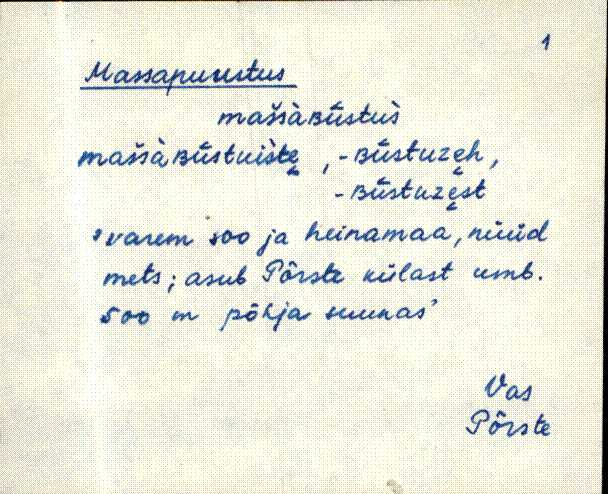 1
Massapuustus
maśsàʙūstùs
maśsàʙūstuiste̬, -ʙūstuze̬h,
-ʙūstuze̬st
'varem soo ja heinamaa, nüüd
mets; asub Põrste külast umb.
500 m põhja suunas'
Vas
Põrste